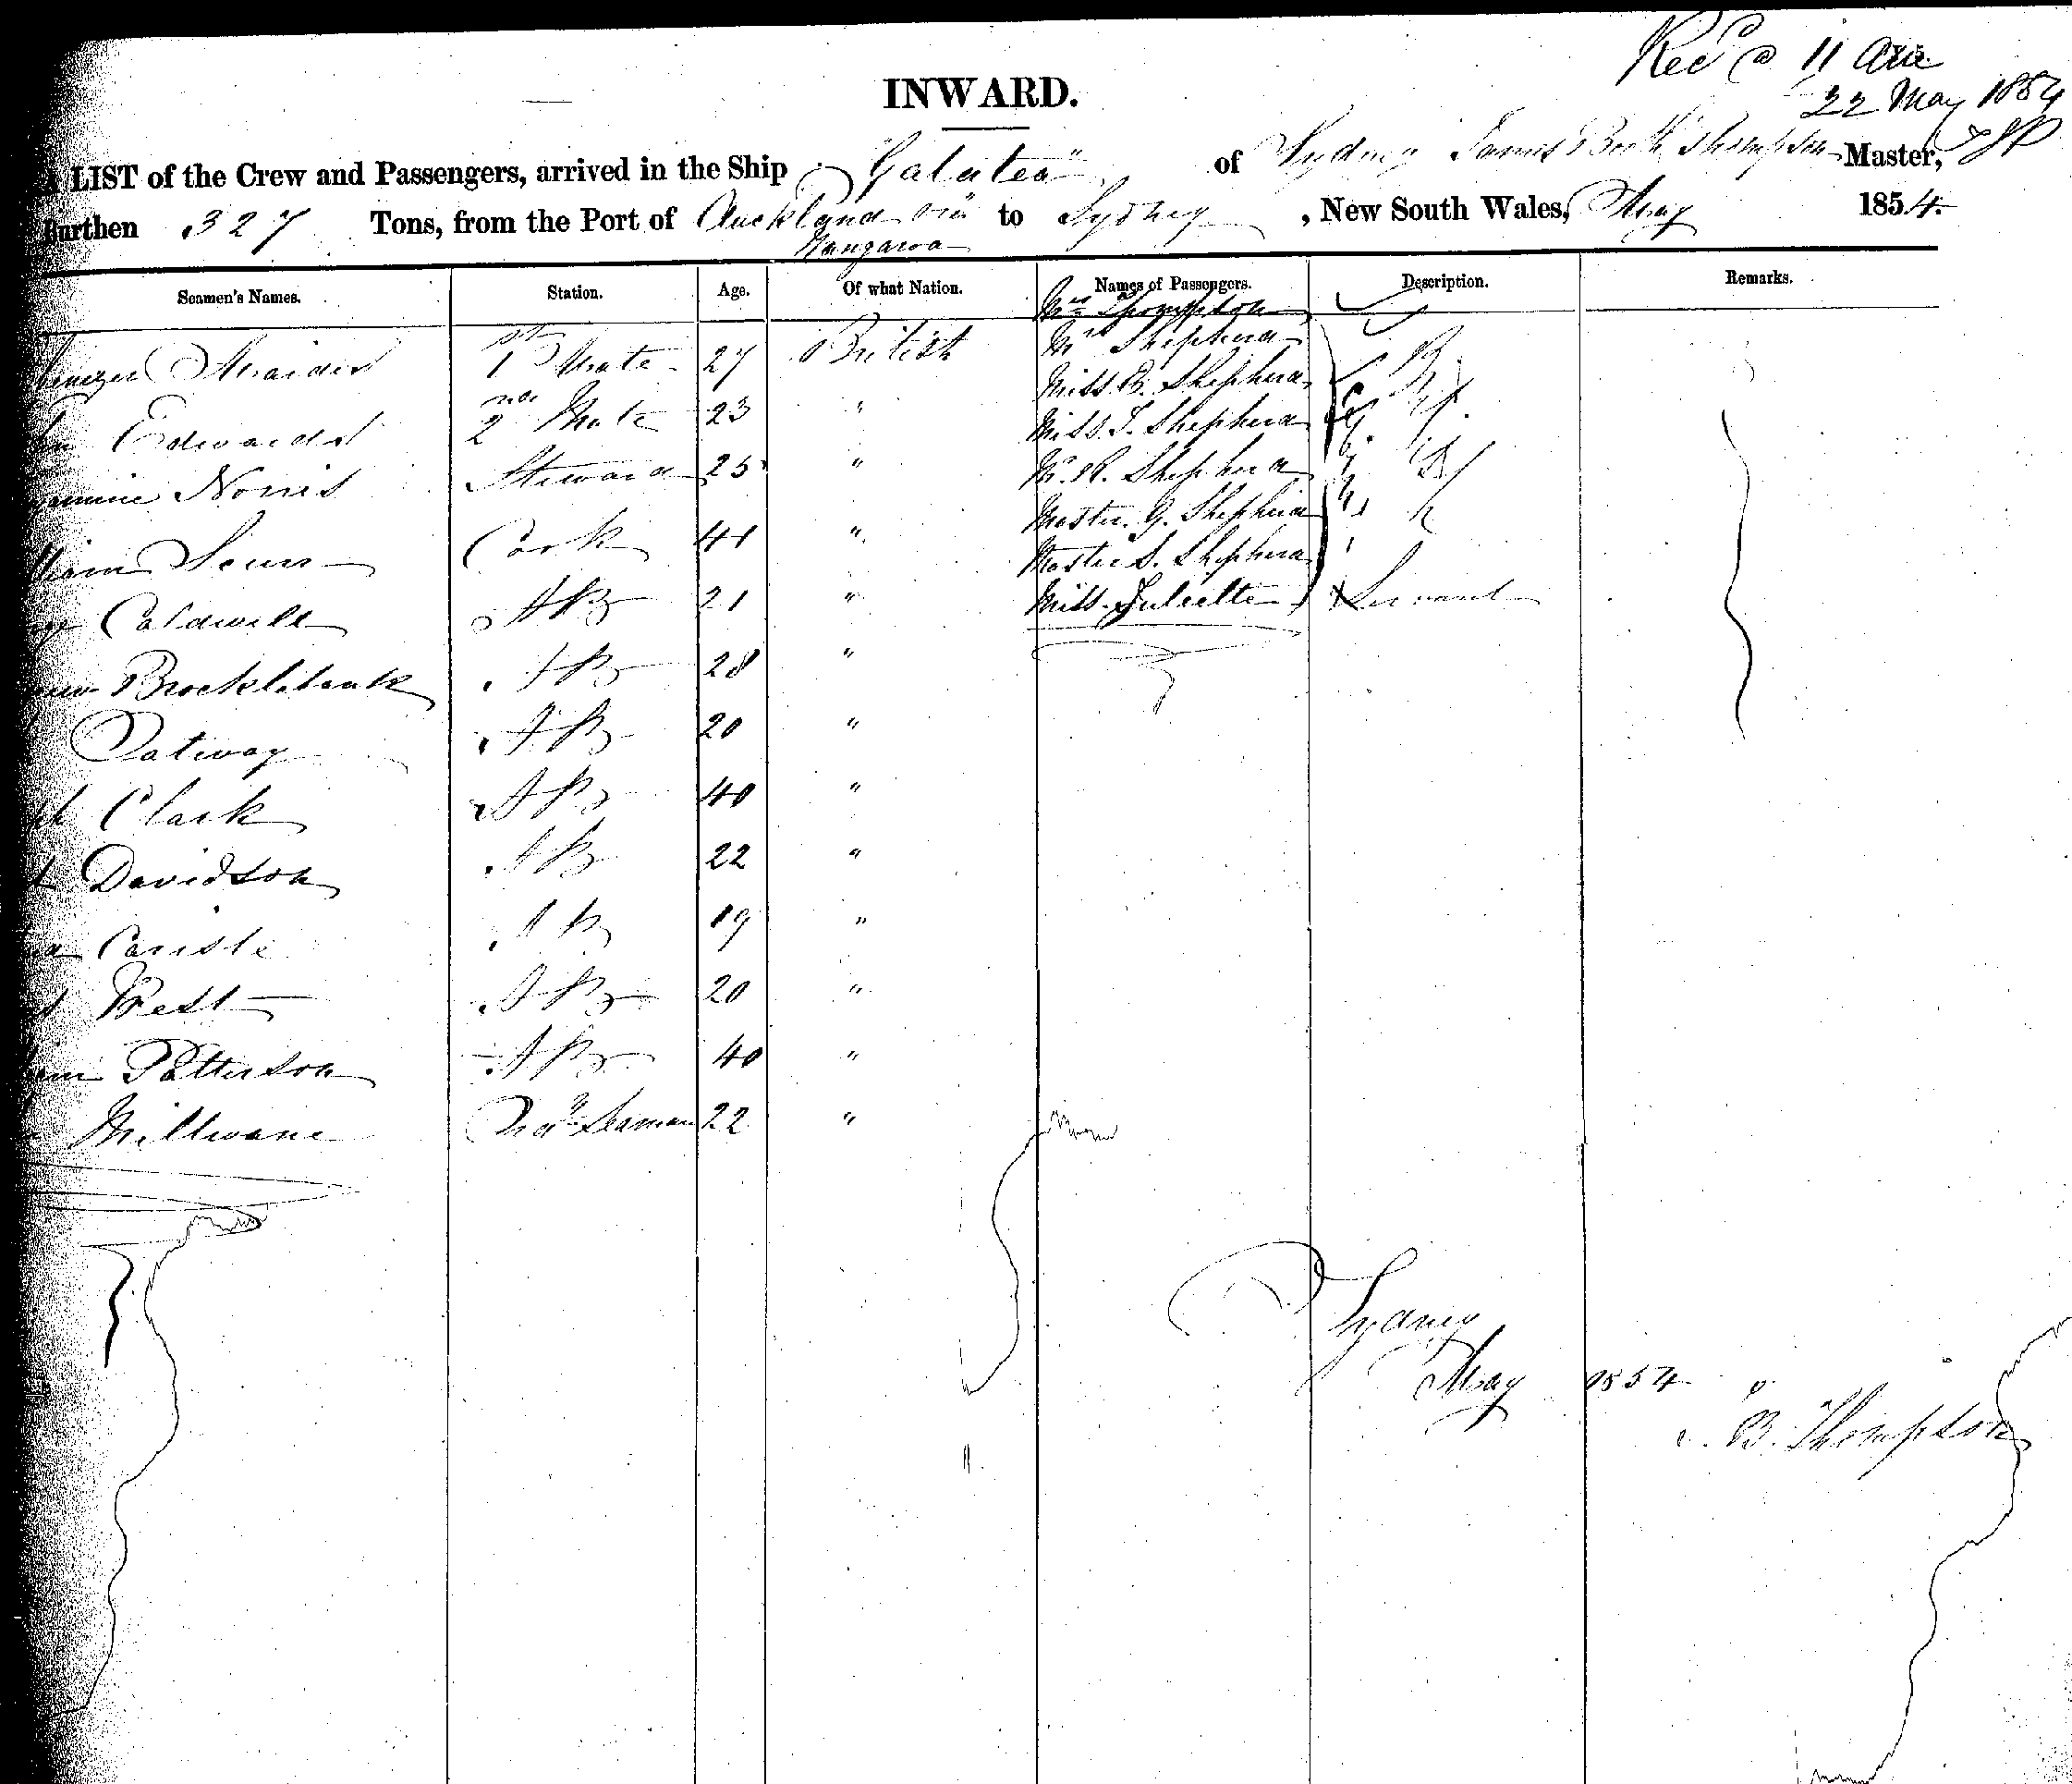 Rec'd @ 11 am
22 May 1854
INWARD.
A LIST of the Crew and Passengers, arrived in the Ship "Galatea" of Sydney James Booth Thompson Master,
Burthen 327 Tons, from the Port of Auckland via to Sydney, New South Wales, May 1854.
Wangaroa
Seamen's Names. Station. Age. Of what Nation. Names of Passengers. Description. Remarks.
Mrs Thompson
1st Mate 27 British Mrs Shepherd
Miss B. Shepherd
Edwards 2nd Mate 23 " Miss T. Shepherd
Norris Steward 25 " Mr. R. Shepherd
Master G. Shepherd
Cook 41 " Master S. Shepherd
Caldwell AB 21 " Miss Juliette Servant
Brocklebank AB 28 "
Patway AB 20 "
Clark AB 40 "
Davidson AB 22 "
Carisle AB 19 "
West AB 20 "
Patterson AB 40 "
Millwane Seaman 22 "
Sydney
May 1854
B. Thompson